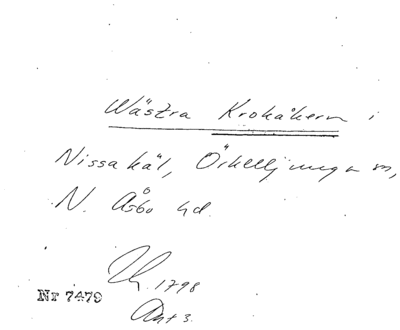 Wästra Krokåkern i
Nissakäl, Örkelljunga sn,
N. Åsbo hd.
1798
Nr 7479
Akt 3.